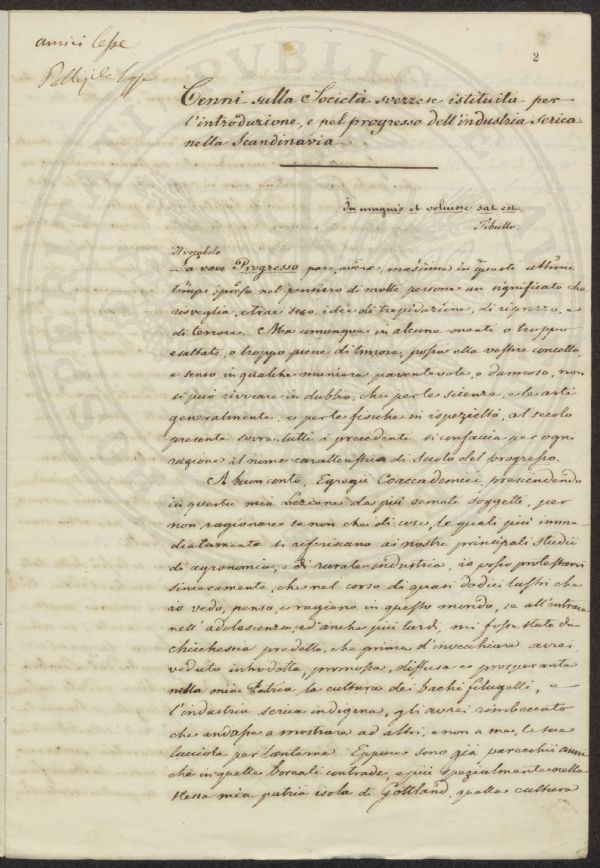 amici
2
Cenni sulla Società svezzese istituita per
l'introduzione, e pel progresso dell'industria serica
nella Scandinavia
In magnis et voluisse sat est
Tibullo
Il vocabolo
La voce Progresso pare avere massime in questi ultimi
tempi preso nel pensiero di molte persone un significato che
risveglia, e trae seco idee di trepidazione, di riprezzo, e
di terrore. Ma comunque in alcune menti o troppo
esaltate, o troppo piene di timore, possa ella vestire concetto,
e senso in qualche maniera paventevole o dannoso, non
si può rivocare in dubbio, che per le scienze, e le arti
generalmente, e per le fisiche in ispezieltà, al secolo
presente sovra tutti i precedenti si confaccia per ogni
ragione il nome caratteristico di Secolo del progresso.
A buon conto, Egregii Coaccademici, prescindendo
in questa mia Lezione da più remoti soggetti, per
non ragionare se non che di cose, le quali più imme
diatamente si riferiscano ai nostri principali studii
di agronomia, e di rurale industria, io posso protestarvi
sinceramente, che nel corso di quasi dodici lustri che
io vedo, penso, e ragiono in questo mondo, se all'entrare
nell'adolescenza, ed anche più tardi, mi fosse stato da
chicchessia predetto, che prima d'invecchiare avrei
veduto introdotta, promossa, diffusa e prosperante
nella mia Patria la cultura dei bachi filugelli, e
l'industria serica indigena, gli avrei rimbeccato
che andasse a mostrare ad altri, e non a me, le sue
lucciole per lanterne. Eppure sono già parecchi anni
che in quelle boreali contrade, e più spezialmente nella
stessa mia patria isola di Gottland, quella cultura